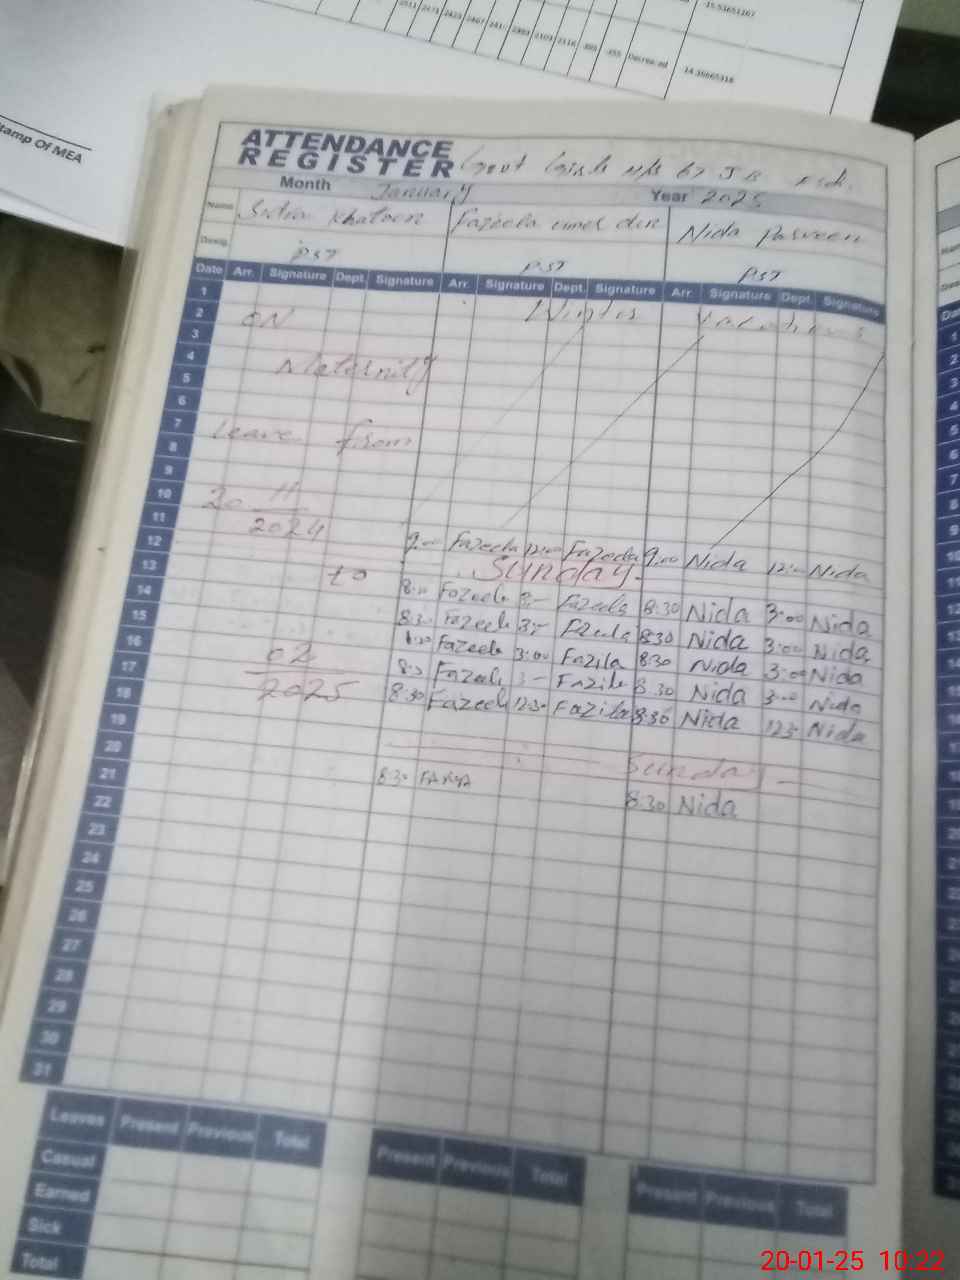 2511 2471 2425 2467 2103 2116 -355 Decreased -14.36665318
-15.53651267
Stamp Of MEA
ATTENDANCE
REGISTER Govt Girls 67 J B
Month January Year 2025
Name Sidra Khatoon Fazeela umer din Nida Parveen
Desig. PST PST PST
Date Arr. Signature Dept. Signature Arr. Signature Dept. Signature Arr. Signature Dept. Signature
1 Winter Vacations
2 ON
3
4 Maternity
5
6
7 Leave from
8
9
10 20 11
11 2024
12 9:00 Fazeela 12:00 Fazeela 9:00 Nida 12:00 Nida
13 Sunday
14 to 8:30 Fazeela 3:- Fazeela 8:30 Nida 3:00 Nida
15 8:30 Fazeela 3:- Fazeela 8:30 Nida 3:00 Nida
16 8:30 Fazeela 3:00 Fazila 8:30 Nida 3:00 Nida
17 02 8:30 Fazeela 3:- Fazila 8:30 Nida 3:00 Nida
18 2025 8:30 Fazeela 12:30 Fazila 8:30 Nida 12:30 Nida
19
20 Sunday
21 8:30 8:30 Nida
22
23
24
25
26
27
28
29
30
31
Leaves Present Previous Total Present Previous Total Present Previous Total
Casual
Earned
Sick
Total
20-01-25 10:22